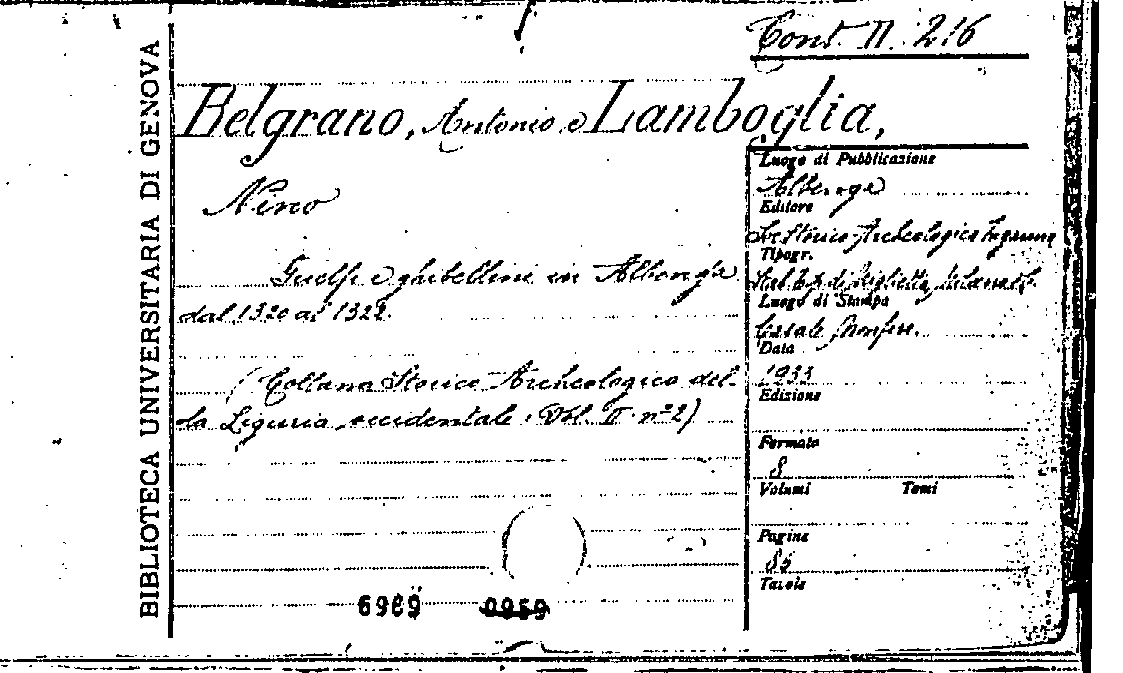 BIBLIOTECA UNIVERSITARIA DI GENOVA
Cons. II. 216
Belgrano, Antonio e Lamboglia,
Nino
Guelfi e ghibellini in Albenga
dal 1320 al 1322.
(Collana Storico-Archeologica del-
la Liguria occidentale. Vol. II. nº 2)
Luogo di Pubblicazione
Albenga
Editore
Storico-Archeologica Ingauna
Tipogr.
Stab. Tip. di Miglietta
Luogo di Stampa
Casale Monferr.
Data
1933
Edizione
Formato
8
Volumi Tomi
Pagine
85
Tavole
6989 0959